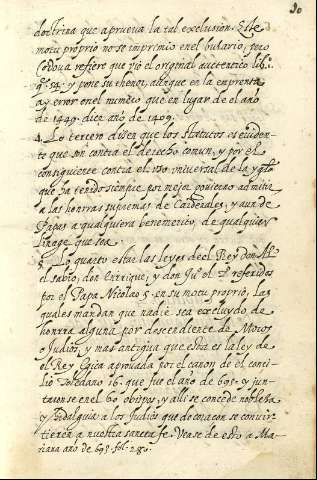 80
doctrina que aprueva la tal exclusion. Este
motu proprio no se imprimio en el bulario, pero
Cordova refiere que vio el original auctentico lib. 1.
q. 54. y pone su thenor, aunque en la emprenta
ay error en el numero que en lugar de el año
de 1449. dice año de 1409.
4. Lo tercero dicen que los statutos es eviden-
te que son contra el derecho comun, y por el
consiguiente contra el uso universal de la ygla
que ha tenido siempre por mejor govierno admitir
a las honrras supremas de Cardenales, y aun de
Papas a qualquiera benemerito, de qualquier
linage que sea.
5. Lo quarto estan las leyes de el Rey Don Al.
el sabio, don Enrrique, y don Ju° el 2° referidos
por el Papa Nicolao 5. en su motu proprio, las
quales mandan que nadie sea excluydo de
honrra alguna por descendiente de Moros
o Judios, y mas antigua que esta es la ley de
el Rey Egica aprovada por el canon de el conci-
lio Toledano 16. que fue el año de 695. y jun-
taronse en el 60 obispos, y alli se concede nobleza
y hidalguia a los Judios que de coraçon se convir-
tieren a nuestra sancta fe. Vease de esto a Ma-
riana año de 695. fol. 280.